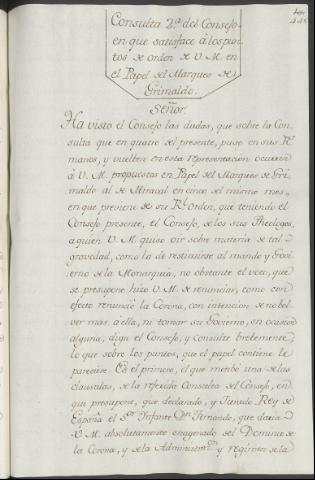 Consulta 2.ª del Consejo
en que satisface à los pun-
tos de orden de V. M. en
el Papel del Marques de
Grimaldo.
Señor.
Ha visto el Consejo las dudas, que sobre la Con-
sulta que en quatro del presente, puso en sus R.ˢ
manos, y vuelve en esta representacion ocurren
à V. M. propuestas en Papel del Marques de Gri-
maldo al de Miraval en cinco del mismo mes,
en que previene de su R.ˡ Orden, que teniendo el
Consejo presente, el Consejo, de los sus Theologos,
a quien V. M. quiso oir sobre materia de tal
gravedad, como la de restituirse al mando y Govi-
erno de la Monarquia, no obstante el voto, que
se presupone hizo V. M. de renunciar, como con
efecto renunciò la Corona, con intencion de no bol-
ver mas à ella, ni tomar su Govierno, en ocasion
alguna, diga el Consejo, y Consulte brevemente
lo que sobre los puntos, que el papel contiene le
pareciere. Es el primero, el que menbé una de las
clausulas, de la referida Consulta del Consejo, en
que presupone, que declarado, y Jurado Rey de
España el S.ᵒʳ Infante D.ⁿ Fernando, que daria
V. M. absolutamente enagenado del Dominio de
la Corona, y de la Administ.ᵒⁿ y regimen de la